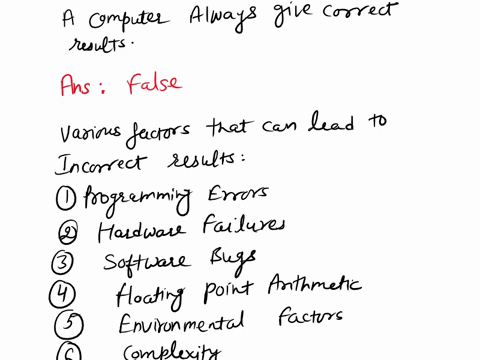 A computer Always give correct
results.
Ans: False
Various factors that can lead to
Incorrect results:
① Programming Errors
② Hardware Failures
③ Software Bugs
④ Floating Point Arithmetic
⑤ Environmental Factors
⑥ Complexity